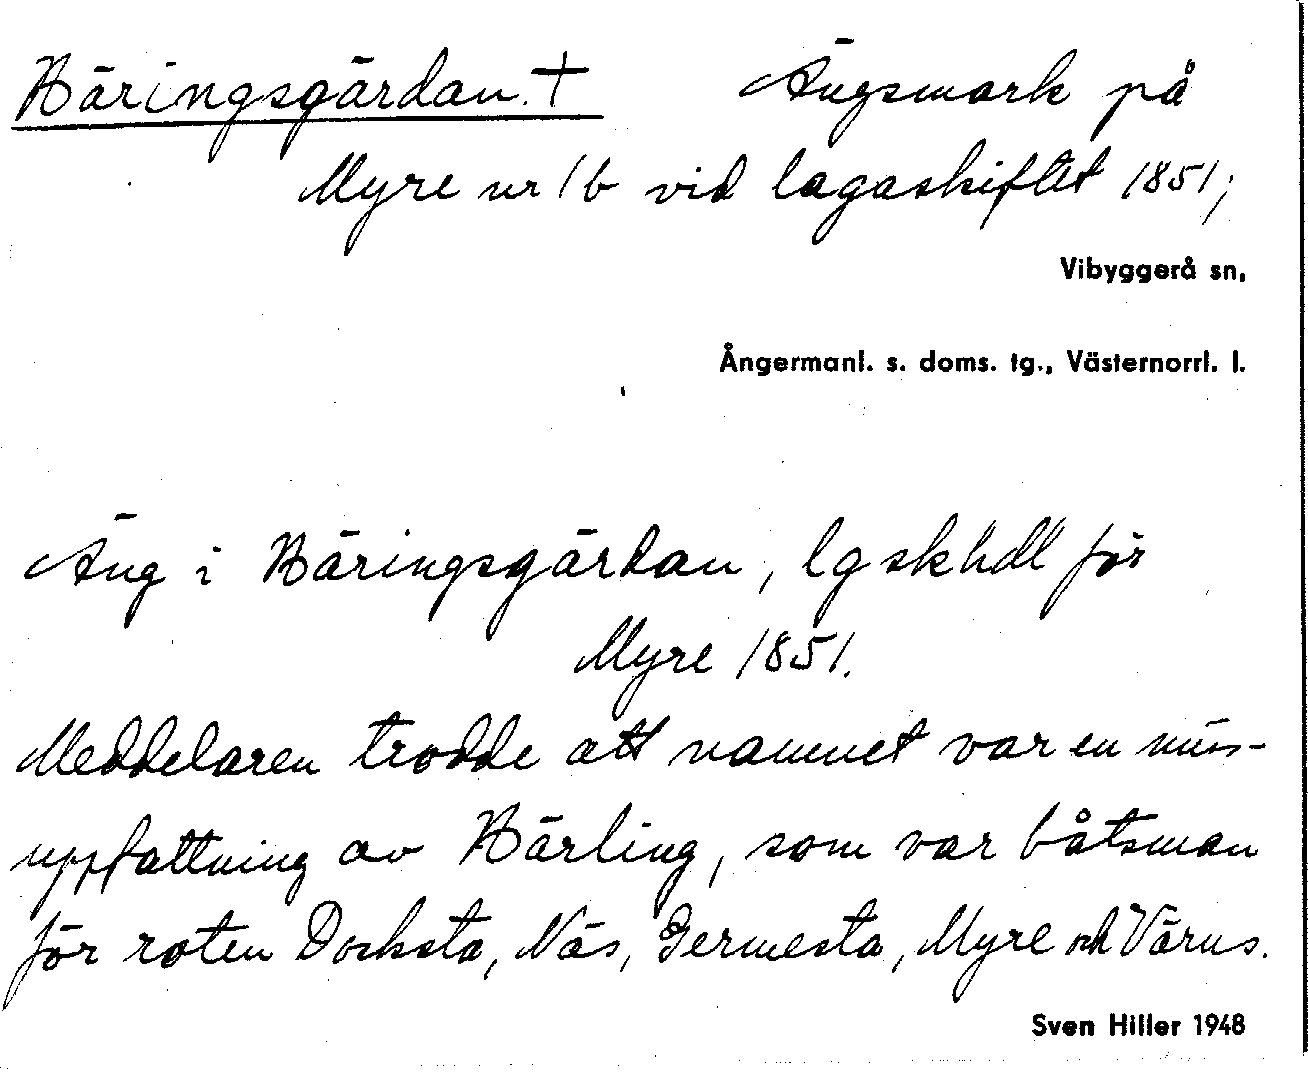 Bäringsgärdan. † Ängsmark på
Myre nr 1b vid lagaskiftet 1851;
Vibyggerå sn,
Ångermanl. s. doms. tg., Västernorrl. l.
Äng i Bäringsgärdan, lgskhdl för
Myre 1851.
Meddelaren trodde att namnet var en miss-
uppfattning av Bärling, som var båtsman
för roten Docksta, Näs, Germesta, Myre och Värns.
Sven Hiller 1948